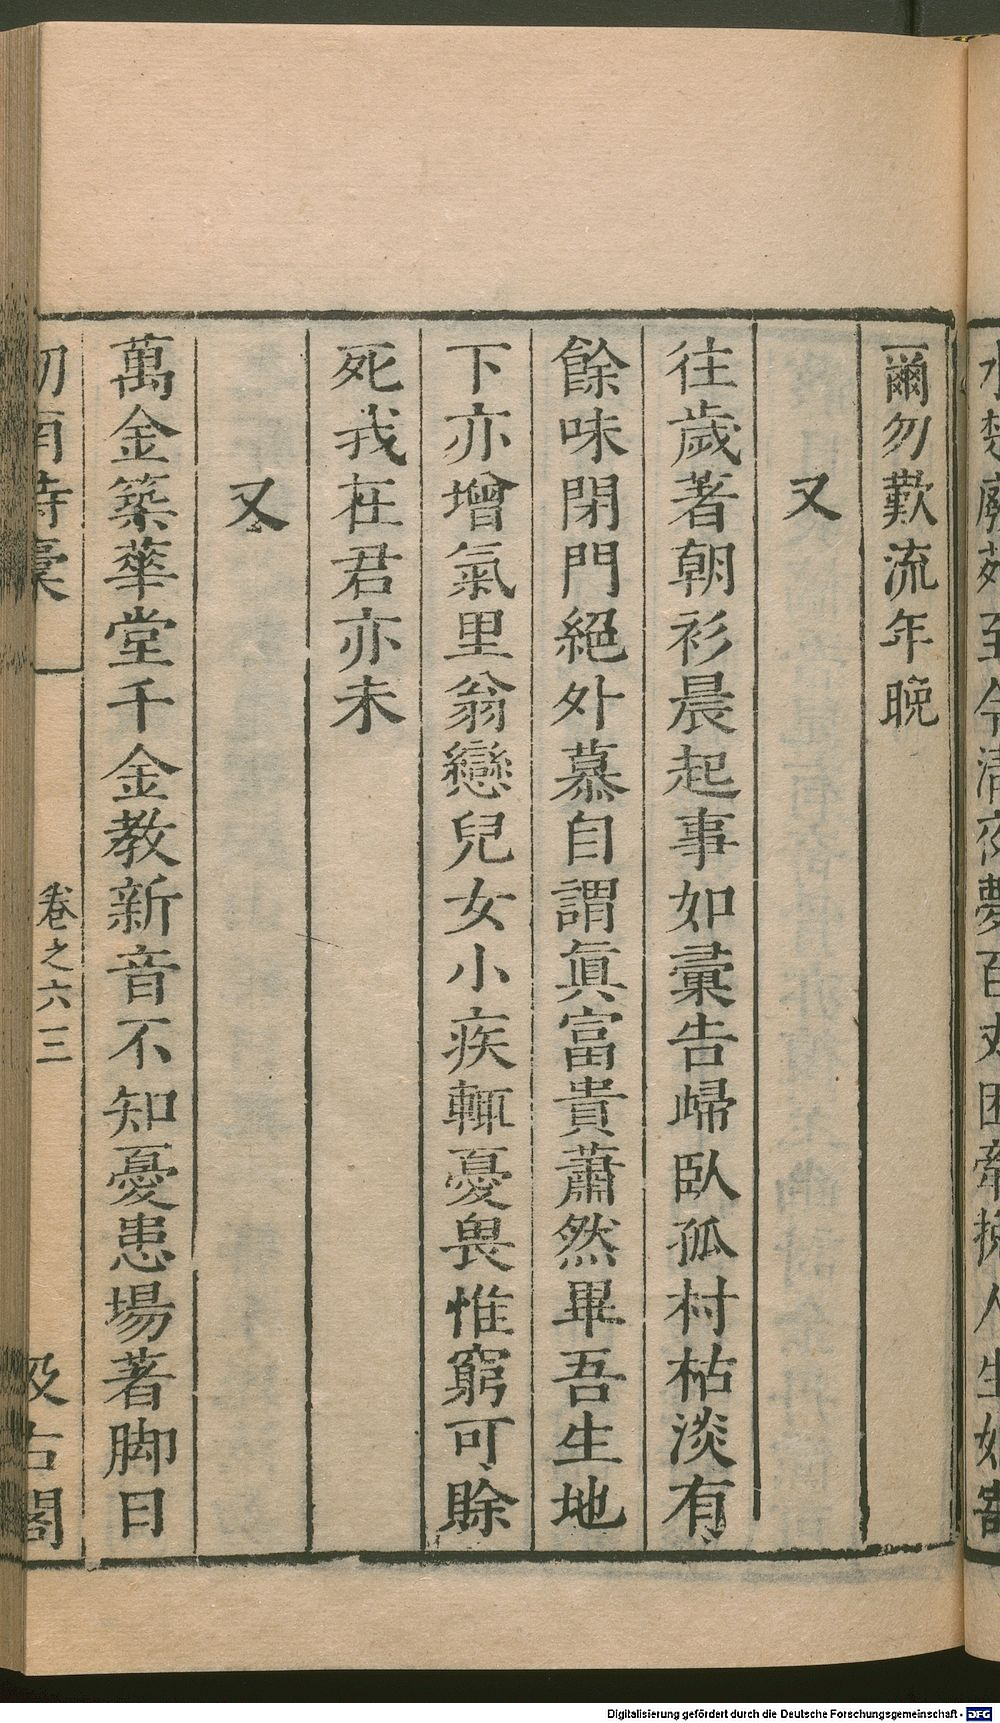 爾勿歎流年晚
又
往歲著朝衫晨起事如彙告歸臥孤村枯淡有
餘味閉門絕外慕自謂眞富貴蕭然畢吾生地
下亦增氣里翁戀兒女小疾輒憂畏惟窮可賒
死我在君亦未
又
萬金築華堂千金教新音不知憂患場著脚日
卷之六 三
汲古閣
Digitalisierung gefördert durch die Deutsche Forschungsgemeinschaft - DFG